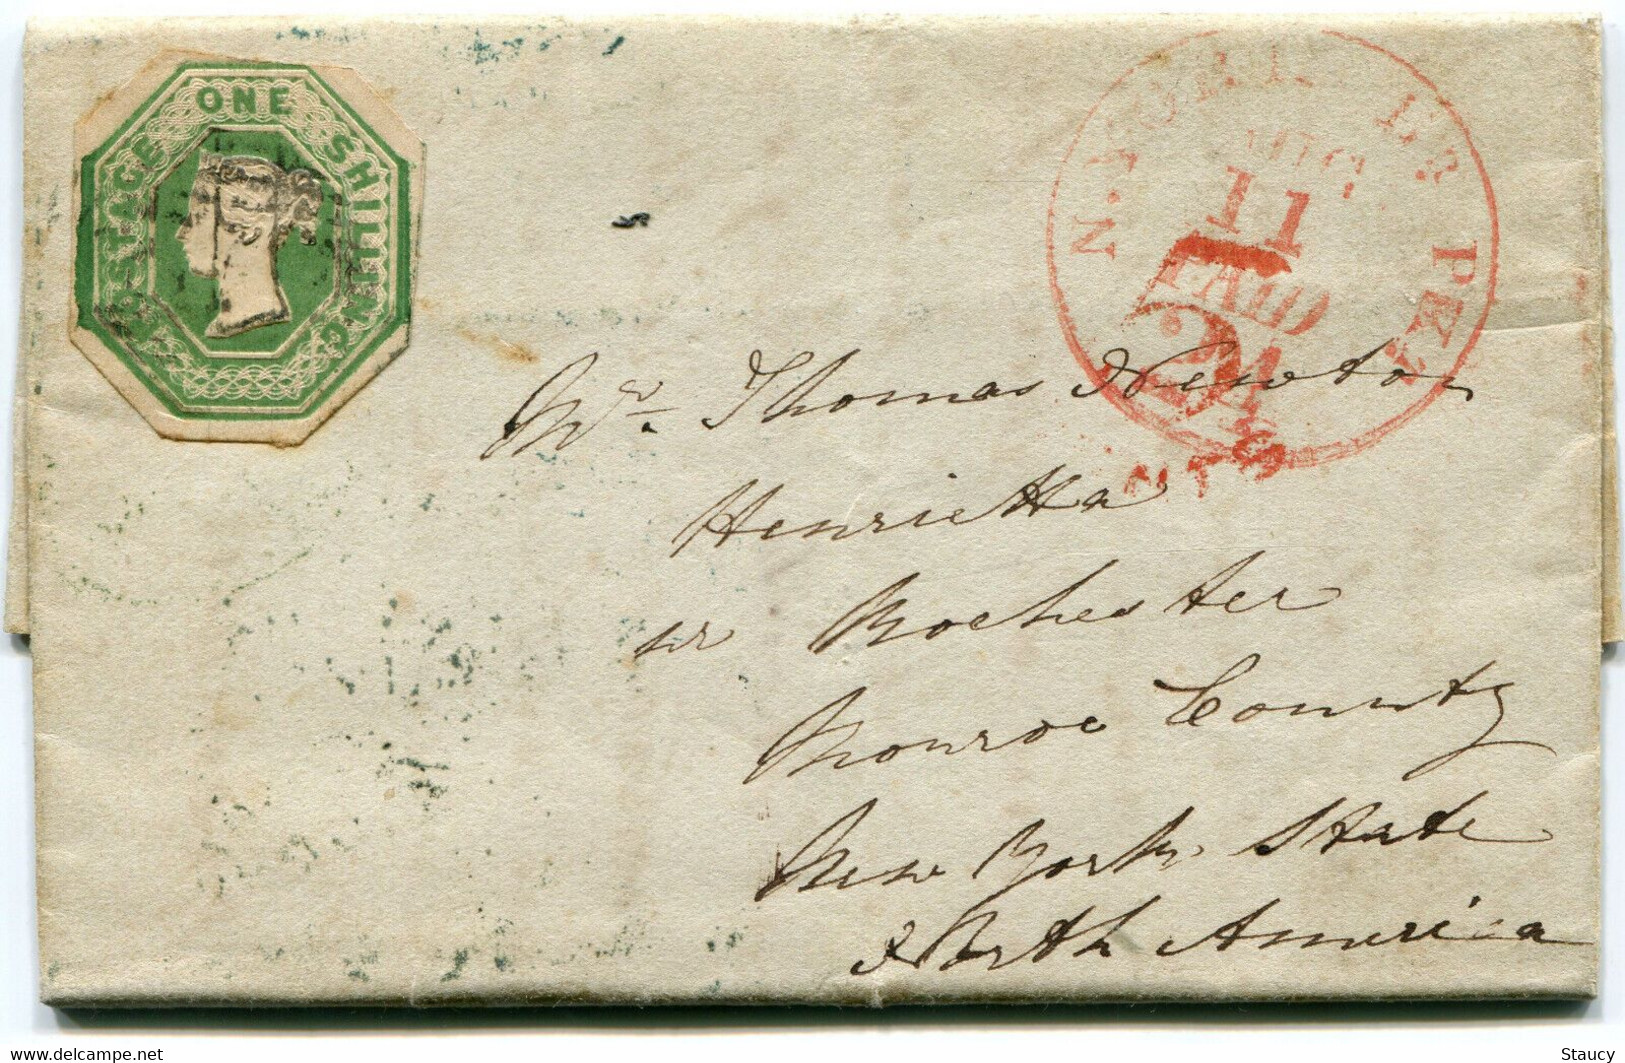 POSTAGE ONE SHILLING
N. YORK BR PKT
AUG
11
PAID
24
NTS
Mr. Thomas Newton
Henrietta
nr Rochester
Monroe County
New York State
North America
© delcampe.net
Staucy